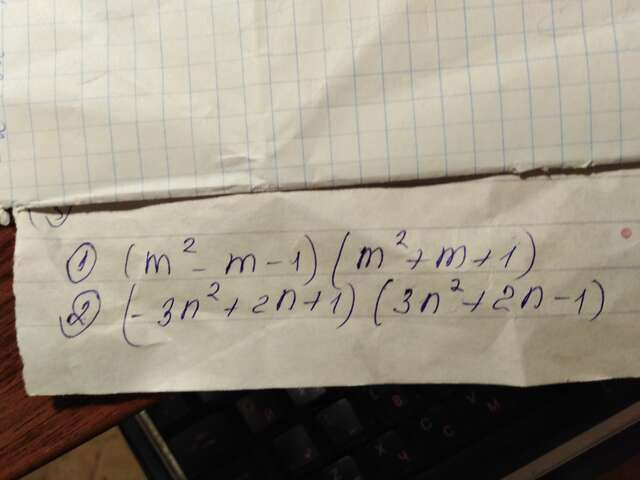 ① (m² - m - 1) (m² + m + 1)
② (- 3n² + 2n + 1) (3n² + 2n - 1)